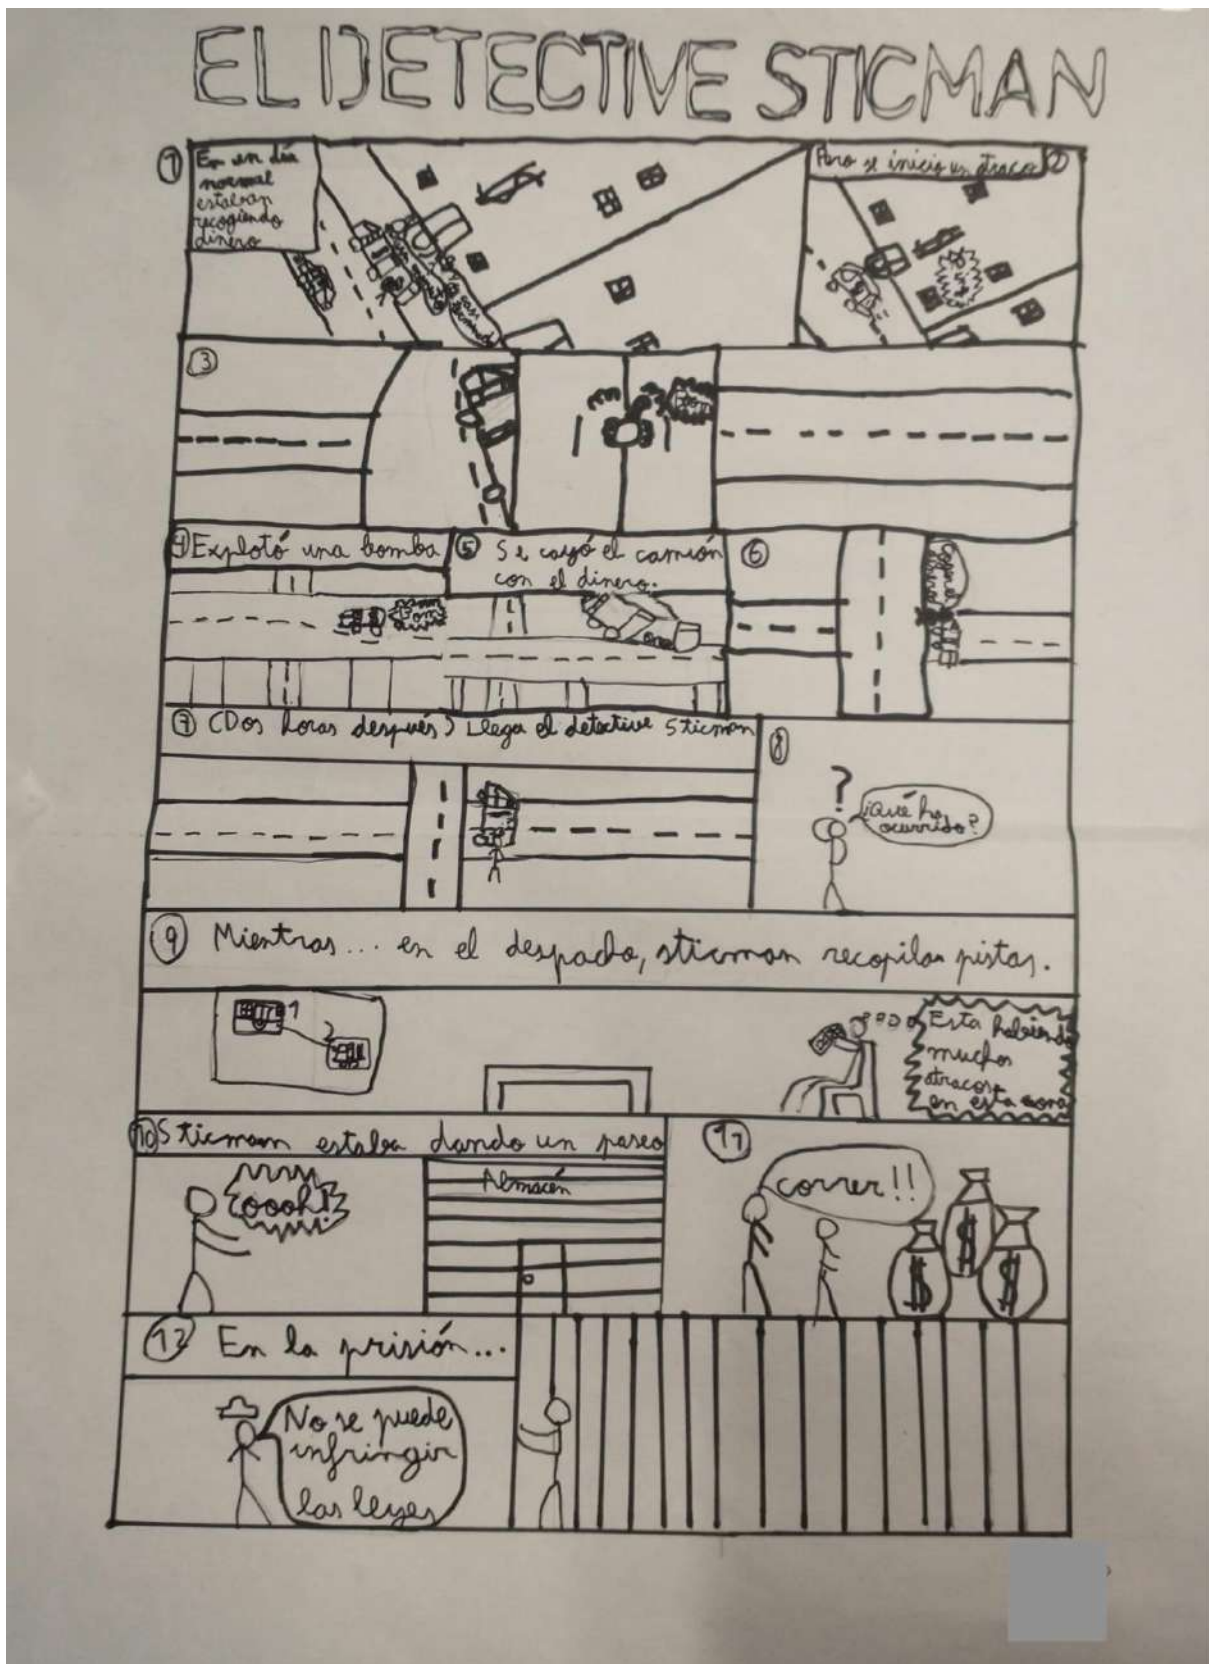 EL DETECTIVE STICMAN
1
En un día
normal
estaban
recogiendo
dinero
Pero se inicio un atraco
2
3
4
Explotó una bomba
5
Se cayó el camión
con el dinero.
6
7
(Dos horas después) Llega el detective Sticman
8
?
¿Qué ha
ocurrido?
9
Mientras... en el despacho, sticman recopila pistas.
1
2
Esta habiendo
muchos
atracos
en esta zona
10
Sticman estaba dando un paseo
oooh!
Almacén
11
correr!!
$
$
$
12
En la prisión...
No se puede
infringir
las leyes